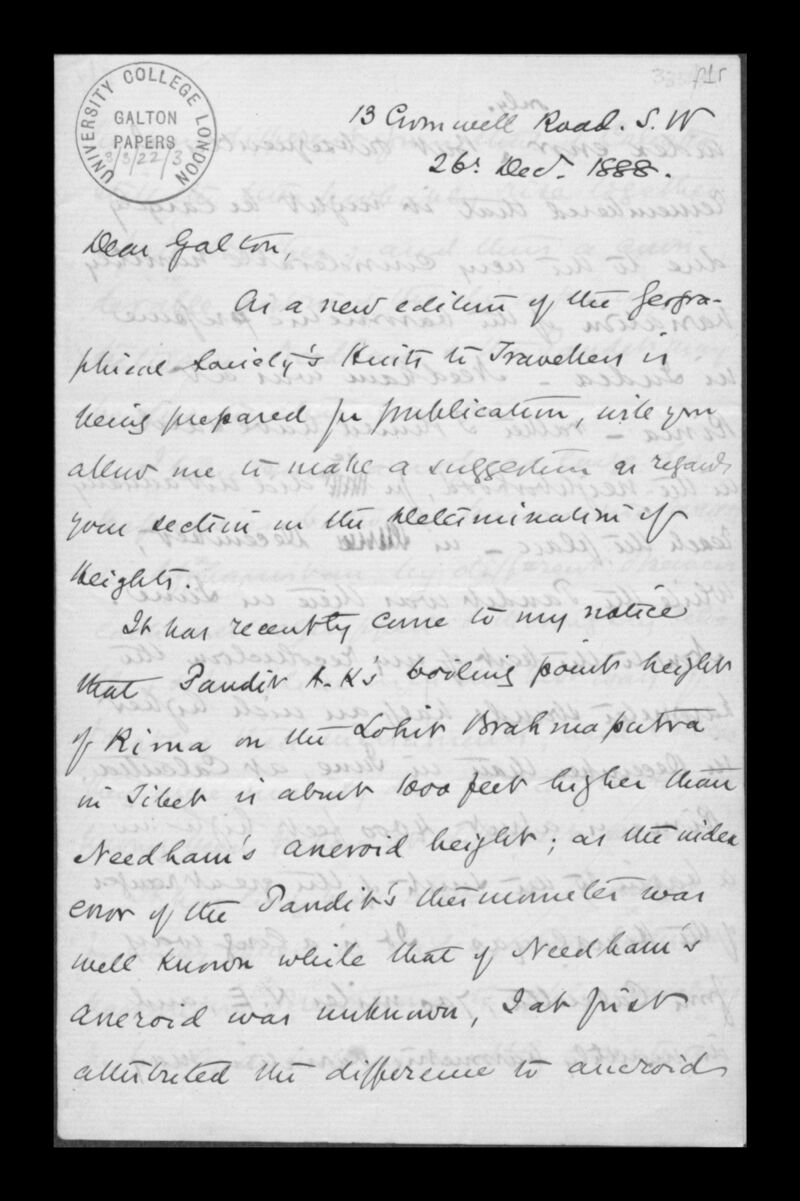 UNIVERSITY COLLEGE LONDON
GALTON
PAPERS
13 Cromwell Road. S.W
26. Dec. 1888.
Dear Galton,
As a new edition of the Geogra-
phical Society's Hints to Travellers is
being prepared for publication, will you
allow me to make a suggestion as regards
your section on the Determination of
Heights.
It has recently come to my notice
that Pandit A-K's boiling point height
of Rima on the Lohit Brahmaputra
in Tibet is about 1000 feet higher than
Needham's aneroid height; as the index
error of the Pandit's thermometer was
well known while that of Needham's
aneroid was unknown, I at first
attributed the difference to aneroid